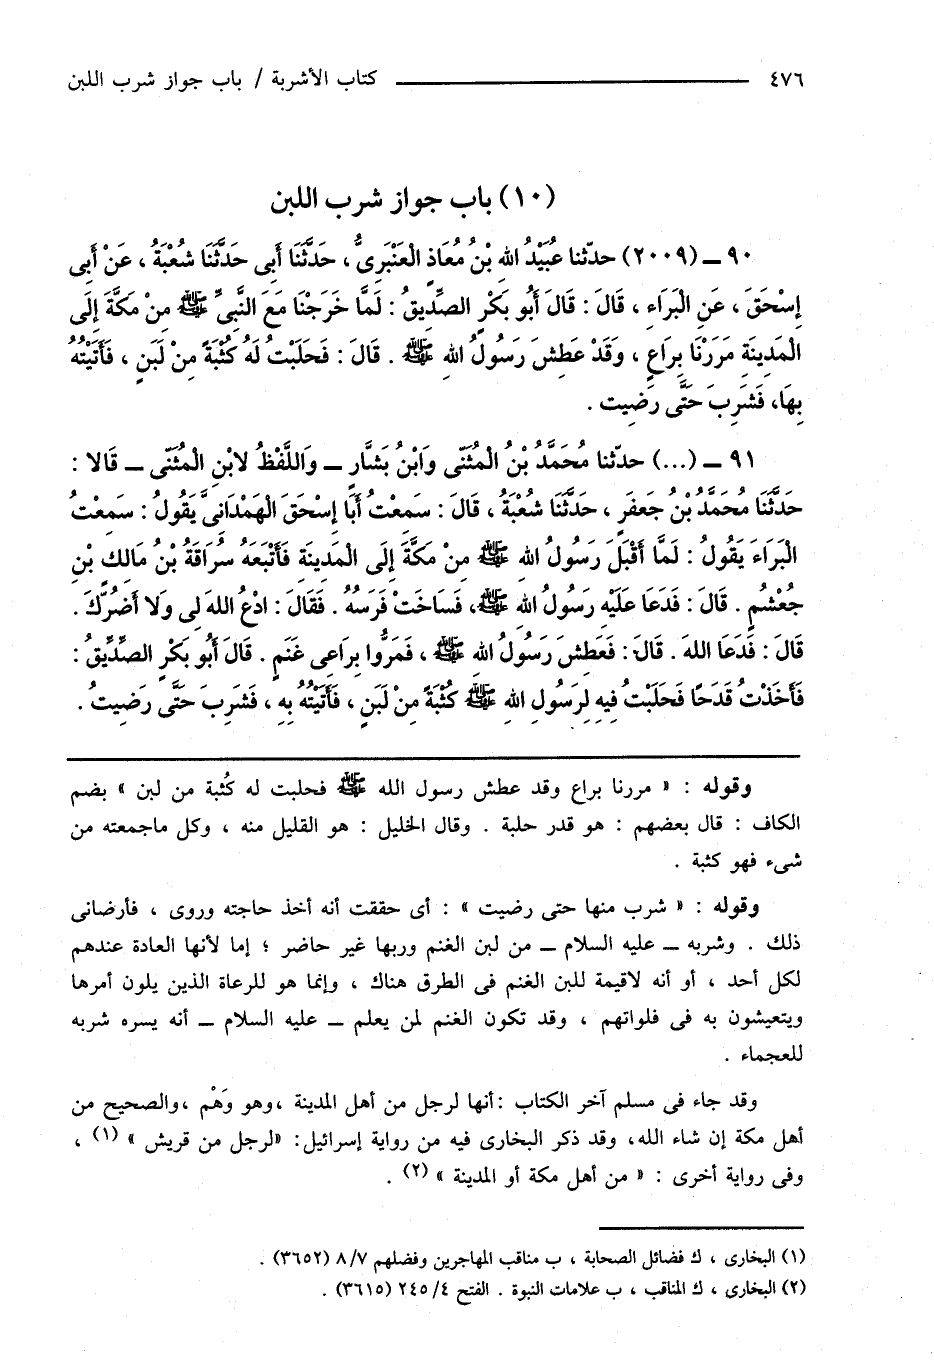 ٤٧٦ ــــــــــ كتاب الأشربة / باب جواز شرب اللبن
(١٠) باب جواز شرب اللبن
٩٠ ــ (٢٠٠٩) حدّثنا عُبَيْدُ الله بْنُ مُعَاذٍ الْعَنْبَرِىُّ ، حَدَّثَنَا أَبِى حَدَّثَنَا شُعْبَةُ ، عَنْ أَبِى
إِسْحَقَ ، عَنِ الْبَرَاءِ ، قَالَ : قَالَ أَبُو بَكْرٍ الصِّدِّيقُ : لَمَّا خَرَجْنَا مَعَ النَّبِىِّ ﷺ مِنْ مَكَّةَ إِلَى
الْمَدِينَةِ مَرَرْنَا بِرَاعٍ ، وَقَدْ عَطِشَ رَسُولُ اللهِ ﷺ . قَالَ : فَحَلَبْتُ لَهُ كُثْبَةً مِنْ لَبَنٍ ، فَأَتَيْتُهُ
بِهَا، فَشَرِبَ حَتَّى رَضِيت .
٩١ ــ (...) حدّثنا مُحَمَّدُ بْنُ الْمُثَنَّى وَابْنُ بَشَّارٍ ــ وَاللَّفْظُ لابْنِ الْمُثَنَّى ــ قَالا :
حَدَّثَنَا مُحَمَّدُ بْنُ جَعْفَرٍ ، حَدَّثَنَا شُعْبَةُ ، قَالَ : سَمِعْتُ أَبَا إِسْحَقَ الْهَمْدَانِىَّ يَقُولُ : سَمِعْتُ
الْبَرَاءَ يَقُولُ : لَمَّا أَقْبَلَ رَسُولُ اللهِ ﷺ مِنْ مَكَّةَ إِلَى الْمَدِينَةِ فَأَتْبَعَهُ سُرَاقَةُ بْنُ مَالِكِ بْنِ
جُعْشُمٍ . قَالَ : فَدَعَا عَلَيْهِ رَسُولُ اللهِ ﷺ، فَسَاخَتْ فَرَسُهُ . فَقَالَ : ادْعُ اللهَ لِى وَلا أَضُرُّكَ .
قَالَ : فَدَعَا اللهَ . قَالَ : فَعَطِشَ رَسُولُ اللهِ ﷺ ، فَمَرُّوا بِرَاعِى غَنَمٍ . قَالَ أَبُو بَكْرٍ الصِّدِّيقُ :
فَأَخَذْتُ قَدَحًا فَحَلَبْتُ فِيهِ لِرَسُولِ اللهِ ﷺ كُثْبَةً مِنْ لَبَنٍ ، فَأَتَيْتُهُ بِهِ ، فَشَرِبَ حَتَّى رَضِيتُ .
وقوله : « مررنا براع وقد عطش رسول الله ﷺ فحلبت له كُثبة من لبن » بضم
الكاف : قال بعضهم : هو قدر حلبة . وقال الخليل : هو القليل منه ، وكل ماجمعته من
شىء فهو كثبة .
وقوله : « شرب منها حتى رضيت » : أى حققت أنه أخذ حاجته وروى ، فأرضانى
ذلك . وشربه ــ عليه السلام ــ من لبن الغنم وربها غير حاضر ؛ إما لأنها العادة عندهم
لكل أحد ، أو أنه لاقيمة للبن الغنم فى الطرق هناك ، وإنما هو للرعاة الذين يلون أمرها
ويتعيشون به فى فلواتهم ، وقد تكون الغنم لمن يعلم ــ عليه السلام ــ أنه يسره شربه
للعجماء .
وقد جاء فى مسلم آخر الكتاب :أنها لرجل من أهل المدينة ،وهو وَهْم ،والصحيح من
أهل مكة إن شاء الله، وقد ذكر البخارى فيه من رواية إسرائيل: «لرجل من قريش » (١) ،
وفى رواية أخرى : « من أهل مكة أو المدينة » (٢) .
(١) البخارى ، ك فضائل الصحابة ، ب مناقب المهاجرين وفضلهم ٨/٧ (٣٦٥٢) .
(٢) البخارى ، ك المناقب ، ب علامات النبوة . الفتح ٢٤٥/٤ (٣٦١٥) .